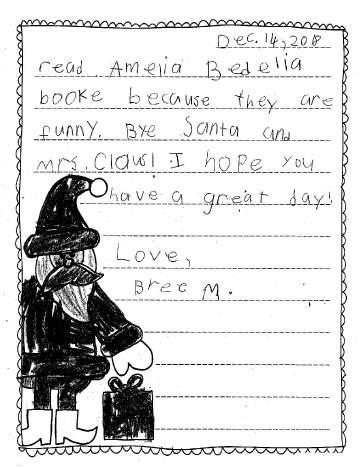 Dec. 14, 2018
read Amelia Bedelia
booke because they are
funny. Bye Santa and
mrs. Claus! I hope you
have a great day!
Love,
Bree M.